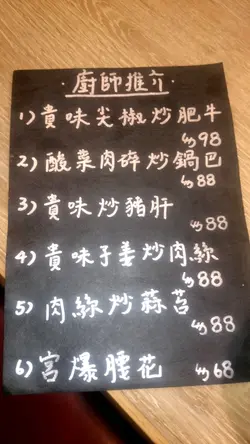 ·廚師推介·
1) 貴味尖椒炒肥牛
$98
2) 酸菜肉碎炒鍋巴
$88
3) 貴味炒豬肝
$88
4) 貴味子姜炒肉絲
$88
5) 肉絲炒蒜苔
$88
6) 宮爆腰花 $68